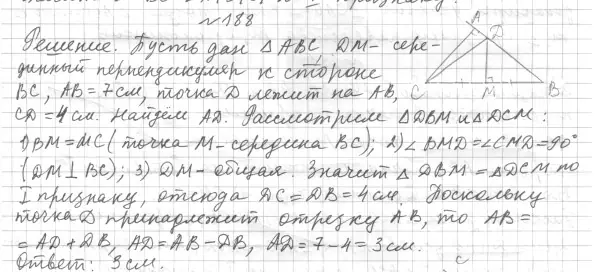 №188
Решение. Пусть дан △ABC, DM - сере-
динный перпендикуляр к стороне
BC, AB = 7 см, точка D лежит на AB,
CD = 4 см. Найдём AD. Рассмотрим △DBM и △DCM:
1) BM = MC (точка M - середина BC); 2) ∠BMD = ∠CMD = 90°
(DM ⊥ BC); 3) DM - общая. Значит △DBM = △DCM по
I признаку, отсюда DC = DB = 4 см. Поскольку
точка D принадлежит отрезку AB, то AB =
= AD + DB, AD = AB - DB, AD = 7 - 4 = 3 см.
Ответ: 3 см.
A
D
C
M
B
C